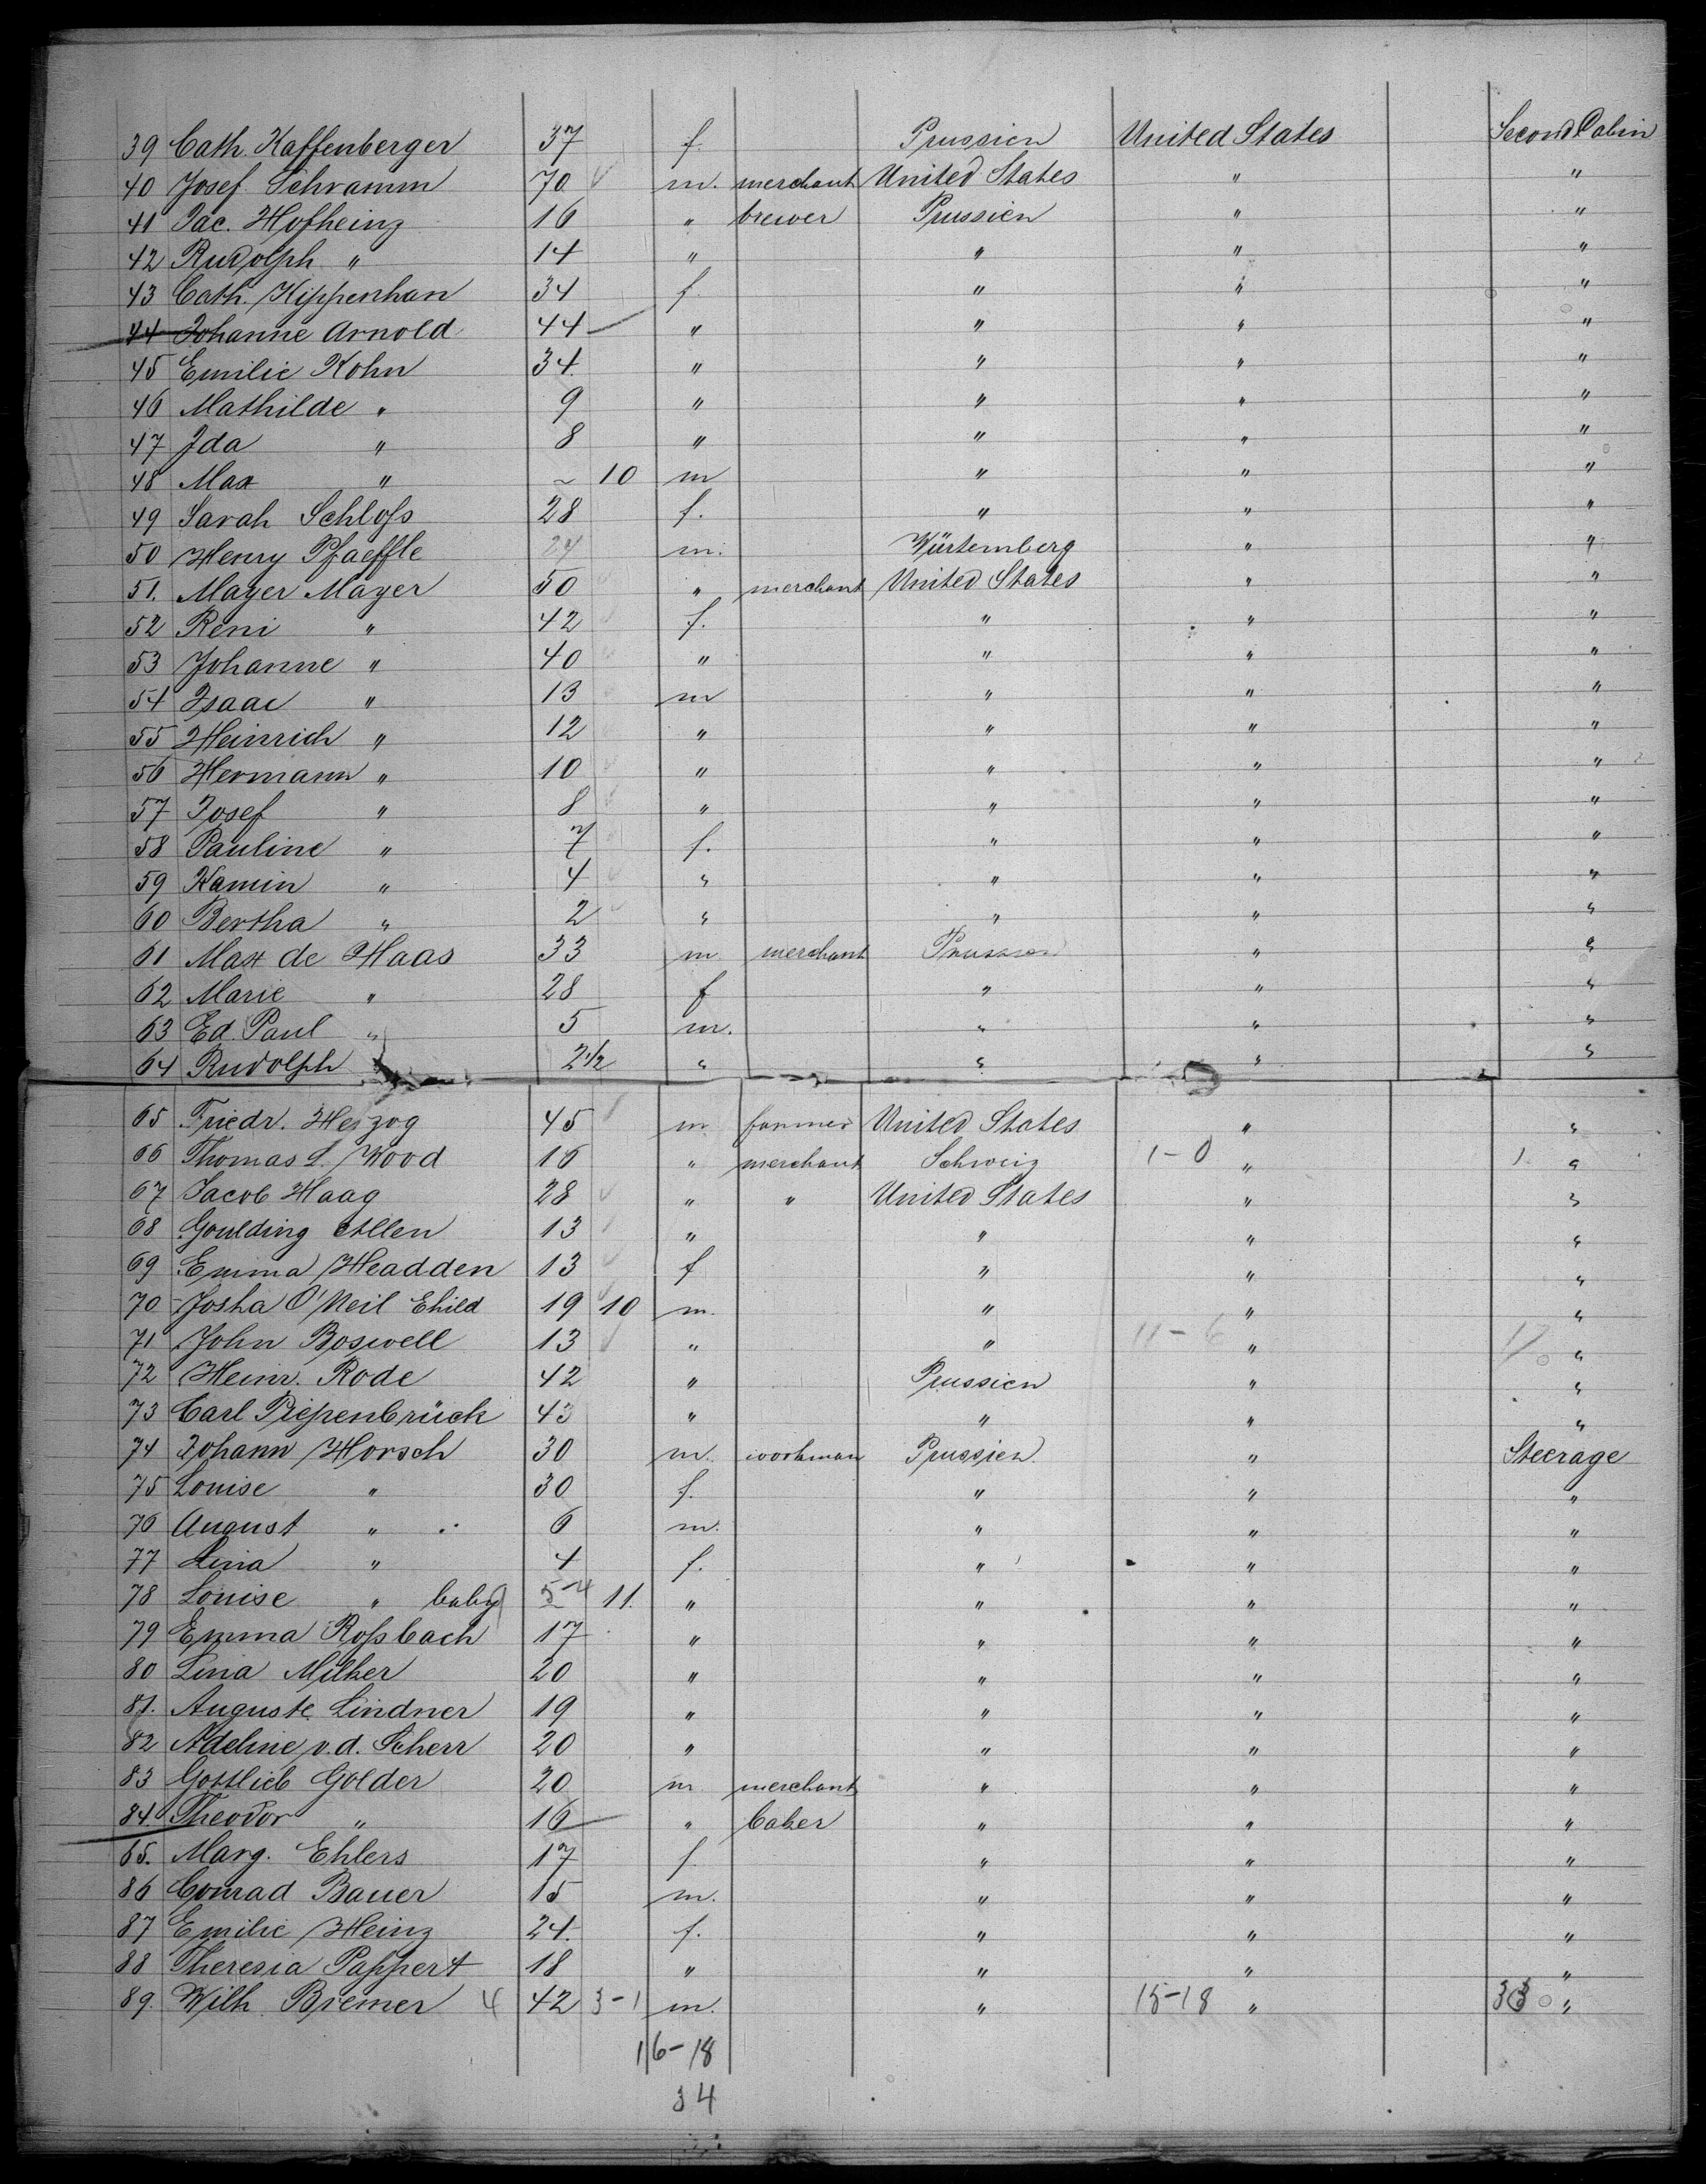 39 Cath. Kaffenberger 37 f. Prussien United States Second Cabin
40 Josef Schramm 70 m. merchant United States " "
41 Jac. Hofheinz 16 " brewer Prussien " "
42 Rudolph " 14 " " " "
43 Cath. Kippenhan 34 f. " " "
44 Johanne Arnold 44 " " " "
45 Emilie Kohn 34. " " " "
46 Mathilde " 9 " " " "
47 Ida " 8 " " " "
48 Max " ~ 10 m " " "
49 Sarah Schloſs 28 f. " " "
50 Henry Pfaeffle 24 m. Würtemberg " "
51. Mayer Mayer 50 " merchant United States " "
52 Reni " 42 f. " " "
53 Johanne " 40 " " " "
54 Isaac " 13 m " " "
55 Heinrich " 12 " " " "
56 Hermann " 10 " " " "
57 Josef " 8 " " " "
58 Pauline " 7 f. " " "
59 Kamin " 4 " " " "
60 Bertha " 2 " " " "
61 Max de Haas 33 m merchant Prussien " "
62 Marie " 28 f " " "
63 Ed. Paul " 5 m. " " "
64 Rudolph " 2 1/2 " " " "
65 Friedr. Herzog 45 m farmer United States " "
66 Thomas L. Wood 16 " merchant Schweiz 1-0 " 1 "
67 Jacob Haag 28 " " United States " "
68 Goulding Allen 13 " " " "
69 Emma Headden 13 f " " "
70 Josha O'Neil Child 19 10 m. " " "
71 John Boswell 13 " " 11-6 " 17 "
72 Heinr. Rode 42 " Prussien " "
73 Carl Piepenbrück 43 " " " "
74 Johann Horsch 30 m. workman Prussien " Steerage
75 Louise " 30 f. " " "
76 August " 6 m. " " "
77 Lina " 4 f. " " "
78 Louise " baby 11. " " " "
79 Emma Roſsbach 17 " " " "
80 Lina Milker 20 " " " "
81. Auguste Lindner 19 " " " "
82 Adeline v.d. Scherr 20 " " " "
83 Gottlieb Golder 20 m merchant " " "
84. Theodor " 16 " baker " " "
85. Marg. Ehlers 17 f. " " "
86 Conrad Bauer 15 m. " " "
87 Emilie Heinz 24. f. " " "
88 Theresia Pappert 18 " " " "
89. Wilh. Bremer 4 42 3-1 m. " 15-18 " 33 "
16-18
34